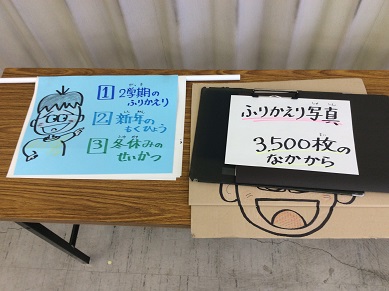 1 2学期の
ふりかえり
2 新年の
もくひょう
3 冬休みの
せいかつ
ふりかえり写真
3,500枚の
なかから